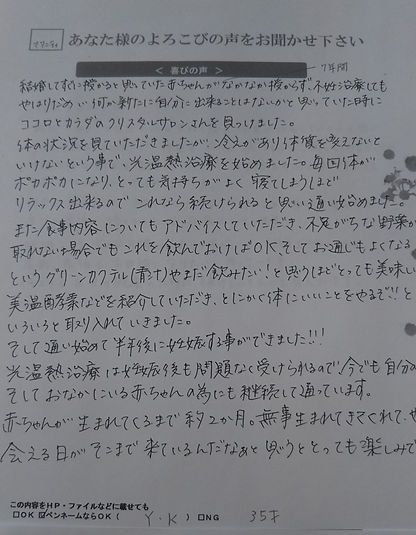 マタニティ
あなた様のよろこびの声をお聞かせ下さい
＜ 喜びの声 ＞
7年間
結婚してすぐに授かると思っていた赤ちゃんがなかなか授からず、不妊治療しても
やはりだめ、何か新たに自分に出来ることはないかと思っていた時に
ココロとカラダのクリスタルサロンさんを見つけました。
体の状況を見ていただきましたが、冷えがあり体質を変えないと
いけないという事で、光温熱治療を始めました。毎回体が
ポカポカになり、とっても気持ちがよく寝てしまうほど
リラックス出来るのでこれなら続けられると思い通い始めました。
また食事内容についてもアドバイスしていただき、不足がちな野菜が
取れない場合でもこれを飲んでおけばOK、そしてお通じもよくなる
というグリーンカクテル(青汁)やまだ飲みたい！と思うほどとっても美味しい
美温酵素などを紹介していただき、とにかく体にいいことをやるぞ!!と
いろいろと取り入れていきました。
そして通い始めて半年後に妊娠する事ができました!!!
光温熱治療は妊娠後も問題なく受けられるので、今でも自分の
そしておなかにいる赤ちゃんの為にも継続して通っています。
赤ちゃんが生まれてくるまで約2か月。無事生まれてきてくれて、
会える日がそこまで来ているんだなぁと思うととっても楽しみで
この内容をHP・ファイルなどに載せても
□OK ☑ペンネームならOK（ Y.K ）□NG 35才